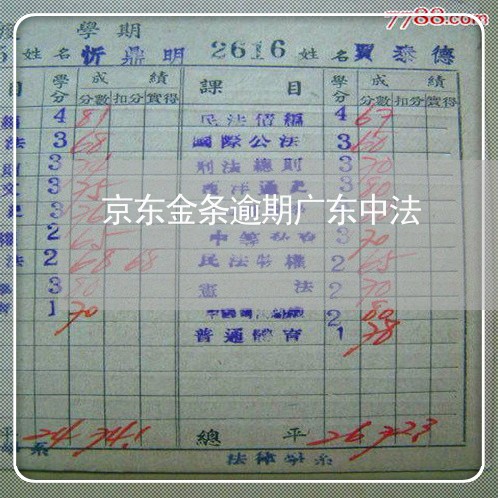 7788.com
學期
姓名 忻鼎明 2616 姓名 賈泰德
目 學分 成績 課目 學分 成績
分數 扣分 實得 分數 扣分 實得
4 81 民法債編 4 67
法 3 68 國際公法 3 60
3 刑法總則 3 70
3 75 西洋通史 3 80
京东金条逾期广东中法
2 65 3 70
法 2 68 68 民法物權 2 65
3 80 憲法 2 70
育 1 70 2 80
普通體育 1 78
平 24 74.1 總平 26 72.3
系 法律學系